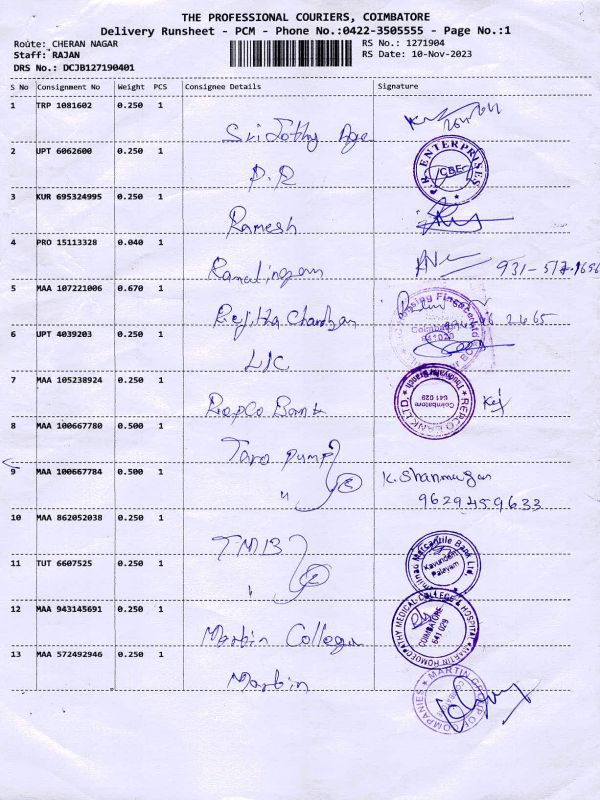 THE PROFESSIONAL COURIERS, COIMBATORE
Delivery Runsheet - PCM - Phone No.:0422-3505555 - Page No.:1
Route: CHERAN NAGAR
RS No.: 1271904
Staff: RAJAN
RS Date: 10-Nov-2023
DRS No.: DCJB127190401
S No Consignment No Weight PCS Consignee Details Signature
1 TRP 1081602 0.250 1
2 UPT 6062600 0.250 1 P.R
P.R ENTERPRISES CBE
3 KUR 695324995 0.250 1 Ramesh
4 PRO 15113328 0.040 1 Ramalingam
5 MAA 107221006 0.670 1
6 UPT 4039203 0.250 1 LIC
Coimbatore
641029
7 MAA 105238924 0.250 1 Repco Bank
REPCO BANK LTD.
Coimbatore
641 029
8 MAA 100667780 0.500 1 Taro pump
9 MAA 100667784 0.500 1 "
2
K. Shanmugan
9629459633
10 MAA 862052038 0.250 1 TMB
Mercantile Bank Ltd.
Kavundam
Palayam
11 TUT 6607525 0.250 1 "
2
12 MAA 943145691 0.250 1 Martin College
MARTIN HOMOEOPATHY MEDICAL COLLEGE & HOSPITAL
COIMBATORE
641 029
13 MAA 572492946 0.250 1 Martin
MARTIN GROUP OF COMPANIES